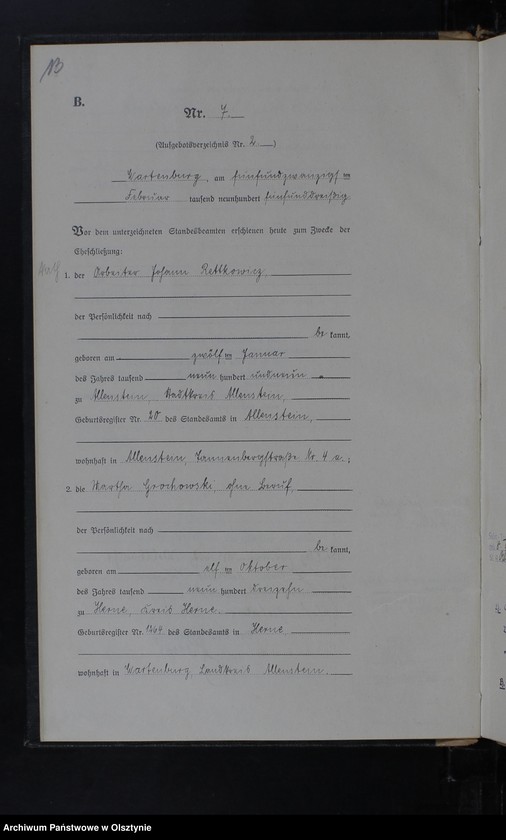 13
B.
Nr. 7.
(Aufgebotsverzeichnis Nr. 2)
Wartenburg, am fünfundzwanzigsten
Februar tausend neunhundert fünfunddreißig
Vor dem unterzeichneten Standesbeamten erschienen heute zum Zwecke der
Eheschließung:
1. der Arbeiter Johann Rettkowicz
der Persönlichkeit nach
be kannt,
geboren am zwölften Januar
des Jahres tausend neun hundert undneun
zu Allenstein, Stadtkreis Allenstein,
Geburtsregister Nr. 20 des Standesamts in Allenstein,
wohnhaft in Allenstein, Tannenbergstraße Nr. 4 a.;
2. die Martha Grochowski, ohne Beruf,
der Persönlichkeit nach
be kannt,
geboren am elften Oktober
des Jahres tausend neun hundert dreizehn
zu Herne, Kreis Herne.
Geburtsregister Nr. 1264 des Standesamts in Herne,
wohnhaft in Wartenburg, Landkreis Allenstein.
Archiwum Państwowe w Olsztynie